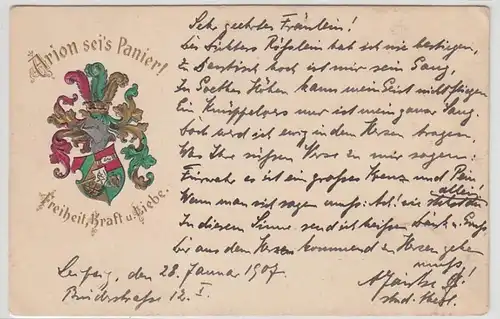 Arion sei's Panier!
Freiheit, Kraft u. Liebe.
Sehr geehrtes Fräulein!
Des Dichters Rößlein hat ich nie bestiegen,
Zu hoch ist mir sein Gang,
In Goethes Höhen kann mein Geist nicht fliegen
Ein Knüppelvers nur ist mein ganzer Sang.
Doch werd ich ewig in dem Herzen tragen,
Was Ihre süßen Verse zu mir sagen:
Fürwahr es ist ein großes Kreuz und Pein
Wenn man sich sagen muß: Ach! wie allein!
In diesem Sinne send ich heißen Dank u. Gruß
der aus dem Herzen kommend z. Herzen gehen
muß!
Leipzig, den 28. Januar 1907
Brüderstraße 12 I.
stud. theol.